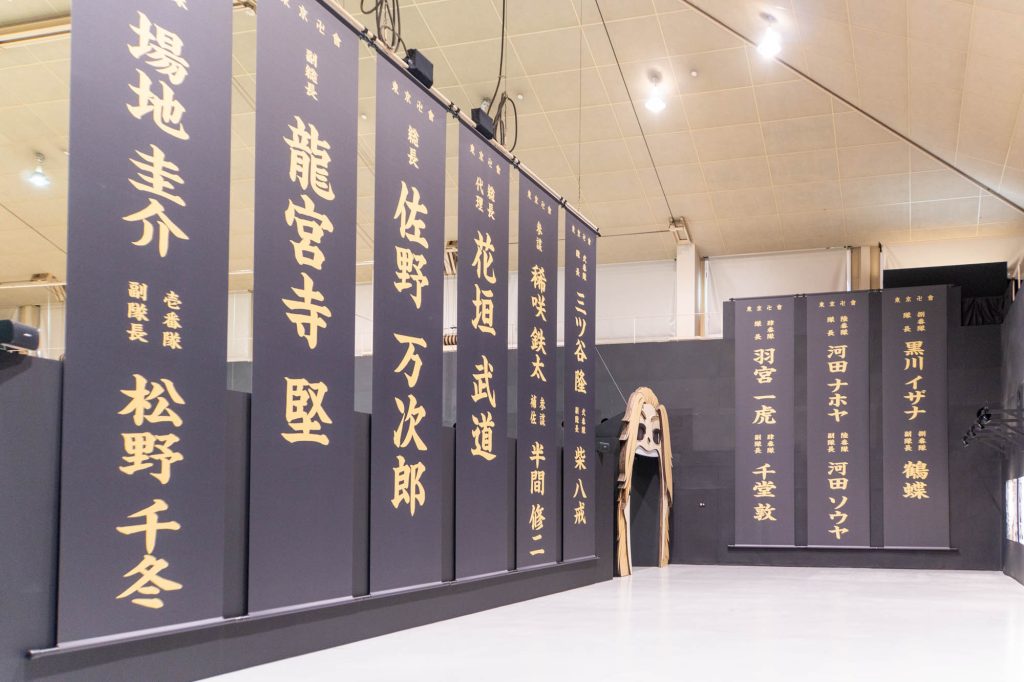 場地 圭介
壱番隊
副隊長
松野 千冬
東京卍會
副総長
龍宮寺 堅
東京卍會
総長
佐野 万次郎
東京卍會
総長
代理
花垣 武道
東京卍會
参謀
稀咲 鉄太
参謀
補佐
半間 修二
東京卍會
弐番隊
隊長
三ツ谷 隆
弐番隊
副隊長
柴 八戒
東京卍會
肆番隊
隊長
羽宮 一虎
肆番隊
副隊長
千堂 敦
東京卍會
陸番隊
隊長
河田 ナホヤ
陸番隊
副隊長
河田 ソウヤ
東京卍會
捌番隊
隊長
黒川 イザナ
捌番隊
副隊長
鶴蝶